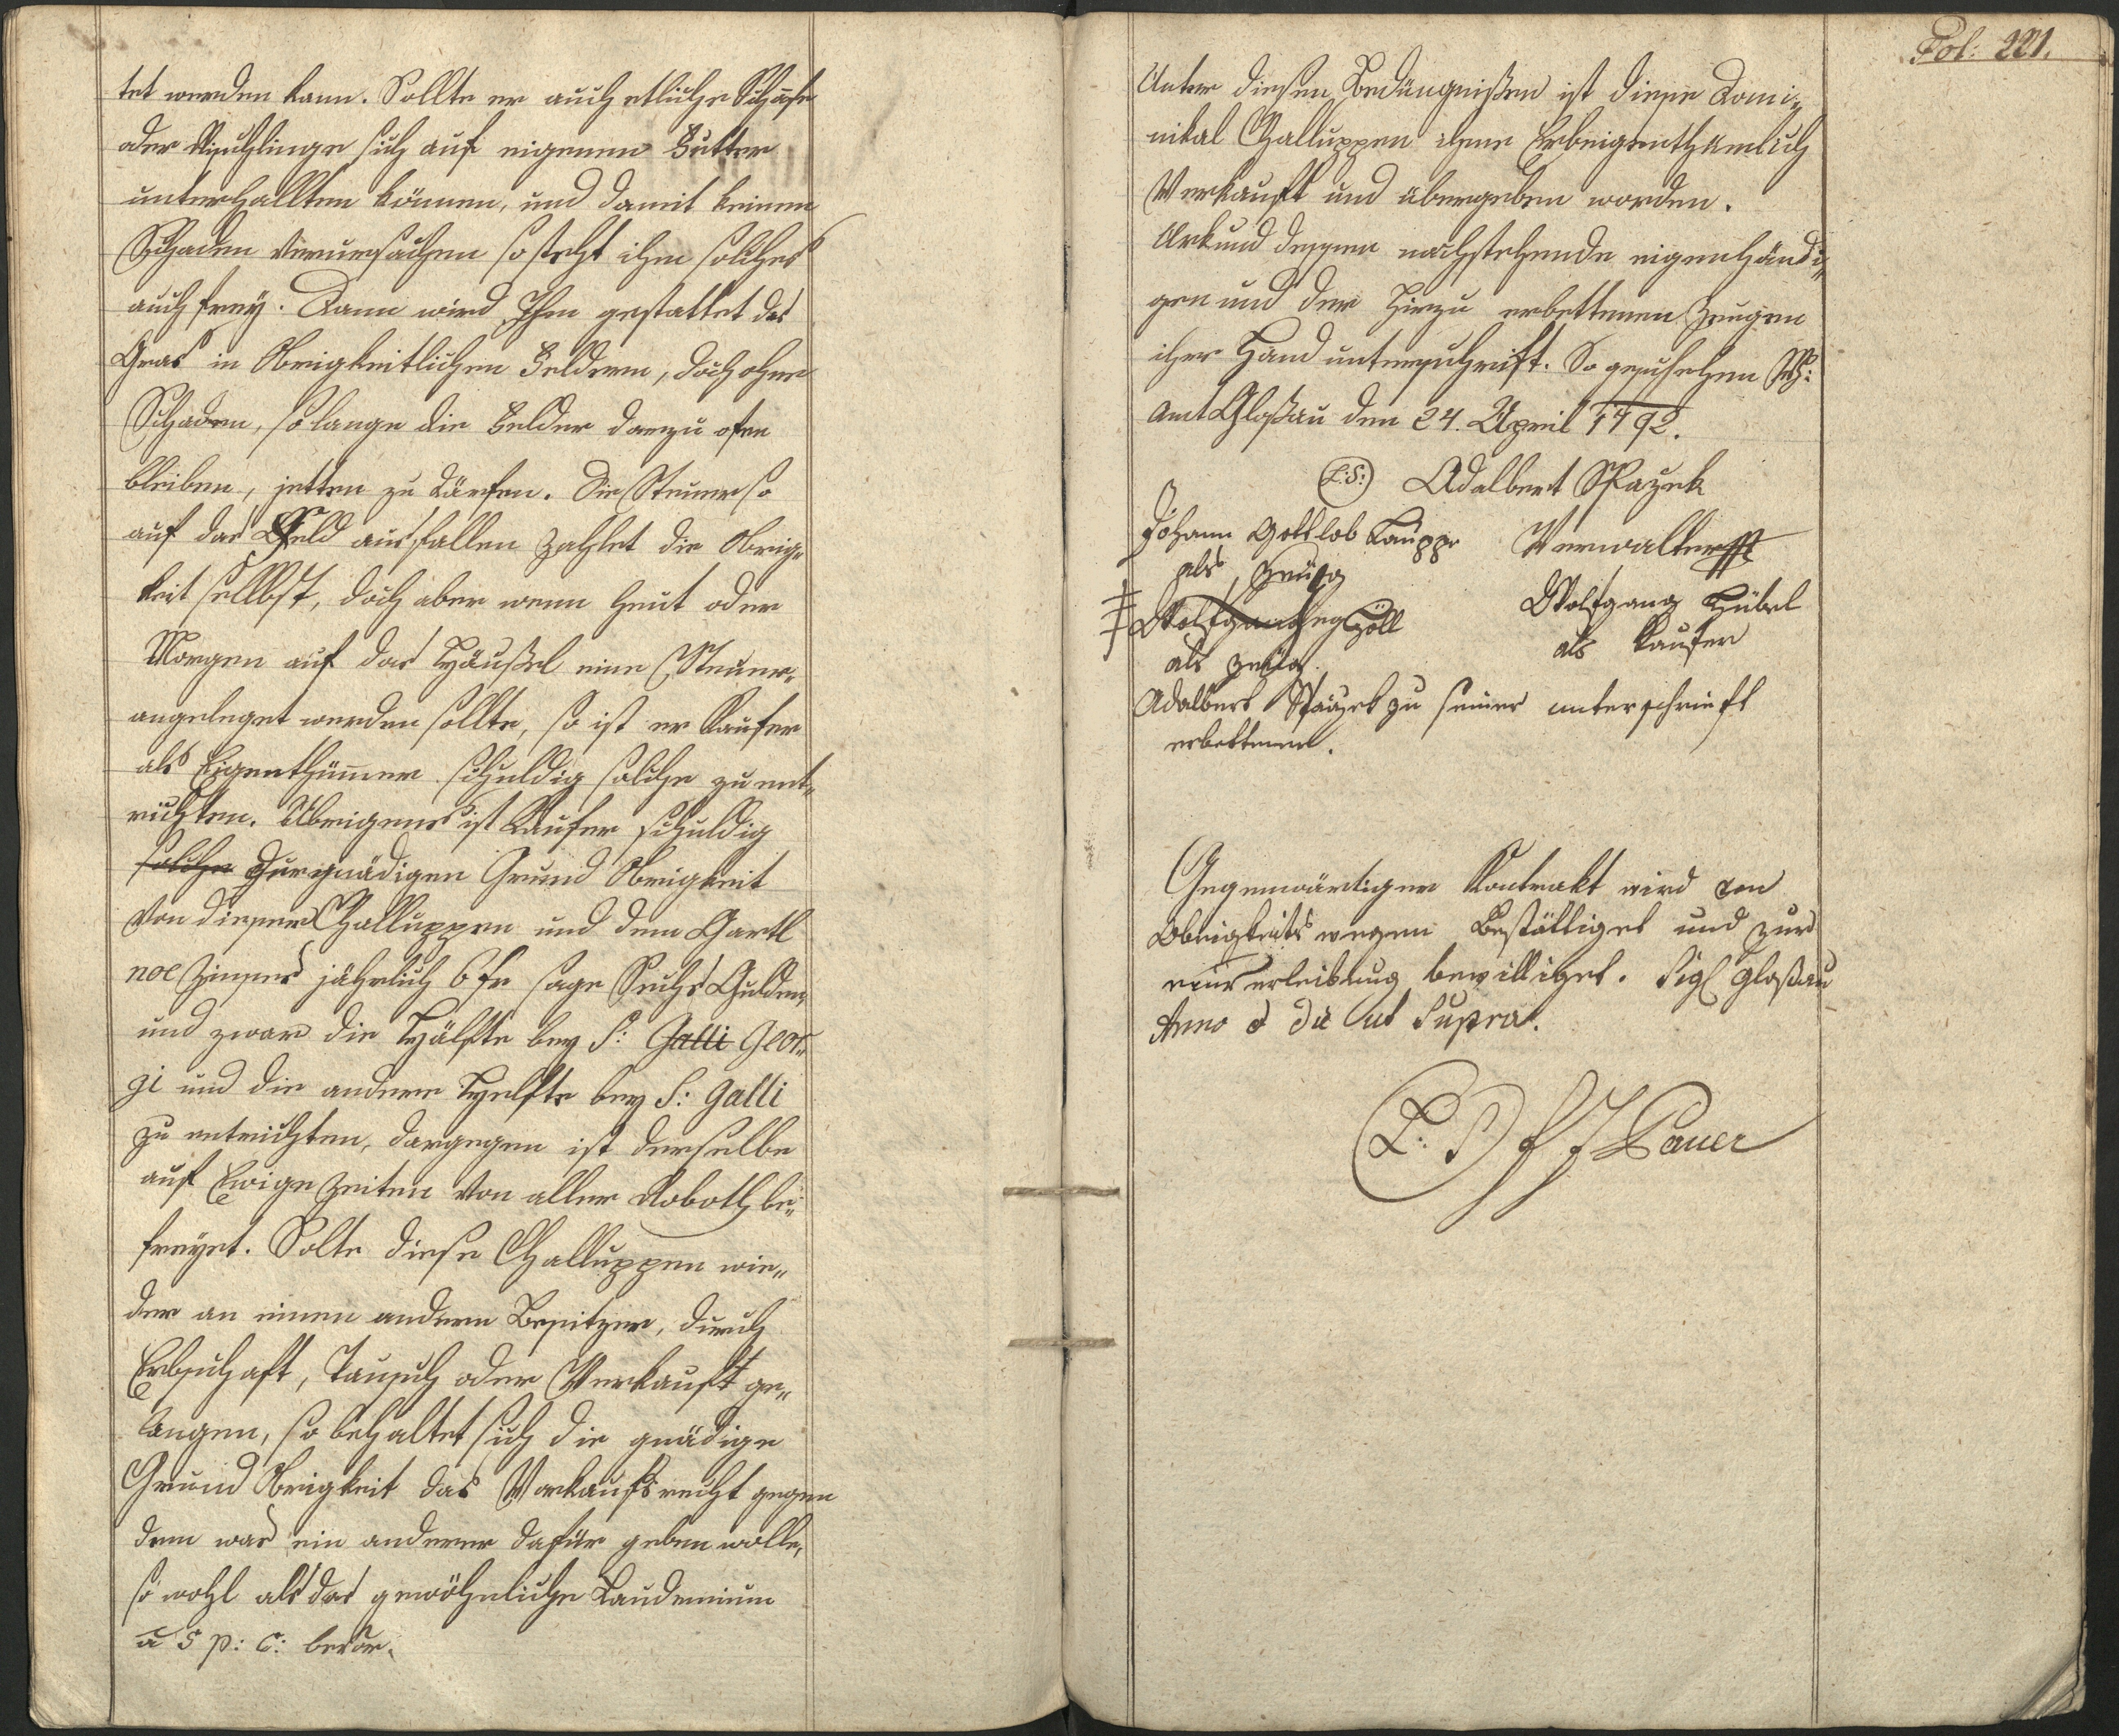 tet werden kann. Sollte er auch etliche Schafe
oder Frischlinge sich auf eigenem Futter
unterhallten können, und damit keinen
Schaden verursachen so steht ihm solches
auch frey. Dann wird Ihm gestattet das
Gras in Obrigkeitlichen Feldern, doch ohne
Schaden, so lange die Felder darzu ofen
bleiben, jetten zu därfen. Die Steuer so
auf das Feld ausfallen zahlet die Obrig„
keit sellbst, doch aber wenn heut oder
Morgen auf das Häußel eine Steuer„
angeleget werden sollte, so ist er Kaufer
als Eigenthümmer schuldig solche zu ent„
richten. Übrigens ist Kaufer schuldig
solche Gnädigen Grund Obrigkeit
von dieser Challuppen und dem Gartl
noe Zinses jährlich 6 fr sage Sechs Gulden,
und zwar die Hälfte bey S: Galli Geor„
gi und die andere Helfte bey S: Galli
zu entrichten, dargegen ist derselbe
auf Ewige Zeiten von aller Roboth be„
freyet. Solte diese Challuppen wie„
der an einen andern Besitzer, durch
Erbschaft, Tausch oder Verkauft ge„
langen, so behaltet sich die gnädige
Grund Obrigkeit das Vorkaufsrecht gegen
dem was ein anderer dafür geben wolle,
so wohl als das gewöhnliche Laudemium
a 5 p: C: bevor.
Fol: 221.
Unter diesen Bedüngnißen ist diese Domi„
nikal Challuppen ihme Erbeigenthumlich
Verkauft und übergeben worden.
Urkund dessen nachstehende eigenhändi„
gen und der hirzu erbettenen Zeugen
ihre Hand unterschrift. So geschehen W:
Amt Gloßau den 24. April 1792.
(L:S:) Adalbert Spazek
Verwalter
Johann Gottlob Kauppe
als Zeug
‡‡‡ Wolfgang Höll
als Zeug.
Wolfgang Hübel
als Kaufer
Adalbert Spazek zu seiner unterschrieft
erbettener.
Gegenwärtiger Kontrakt wird von
Obrigkeits wegen Bestättiget und zur
einverleibung bewilliget. Sigl Gloßau
Anno & die ut Supra.
(L: S) Bauer